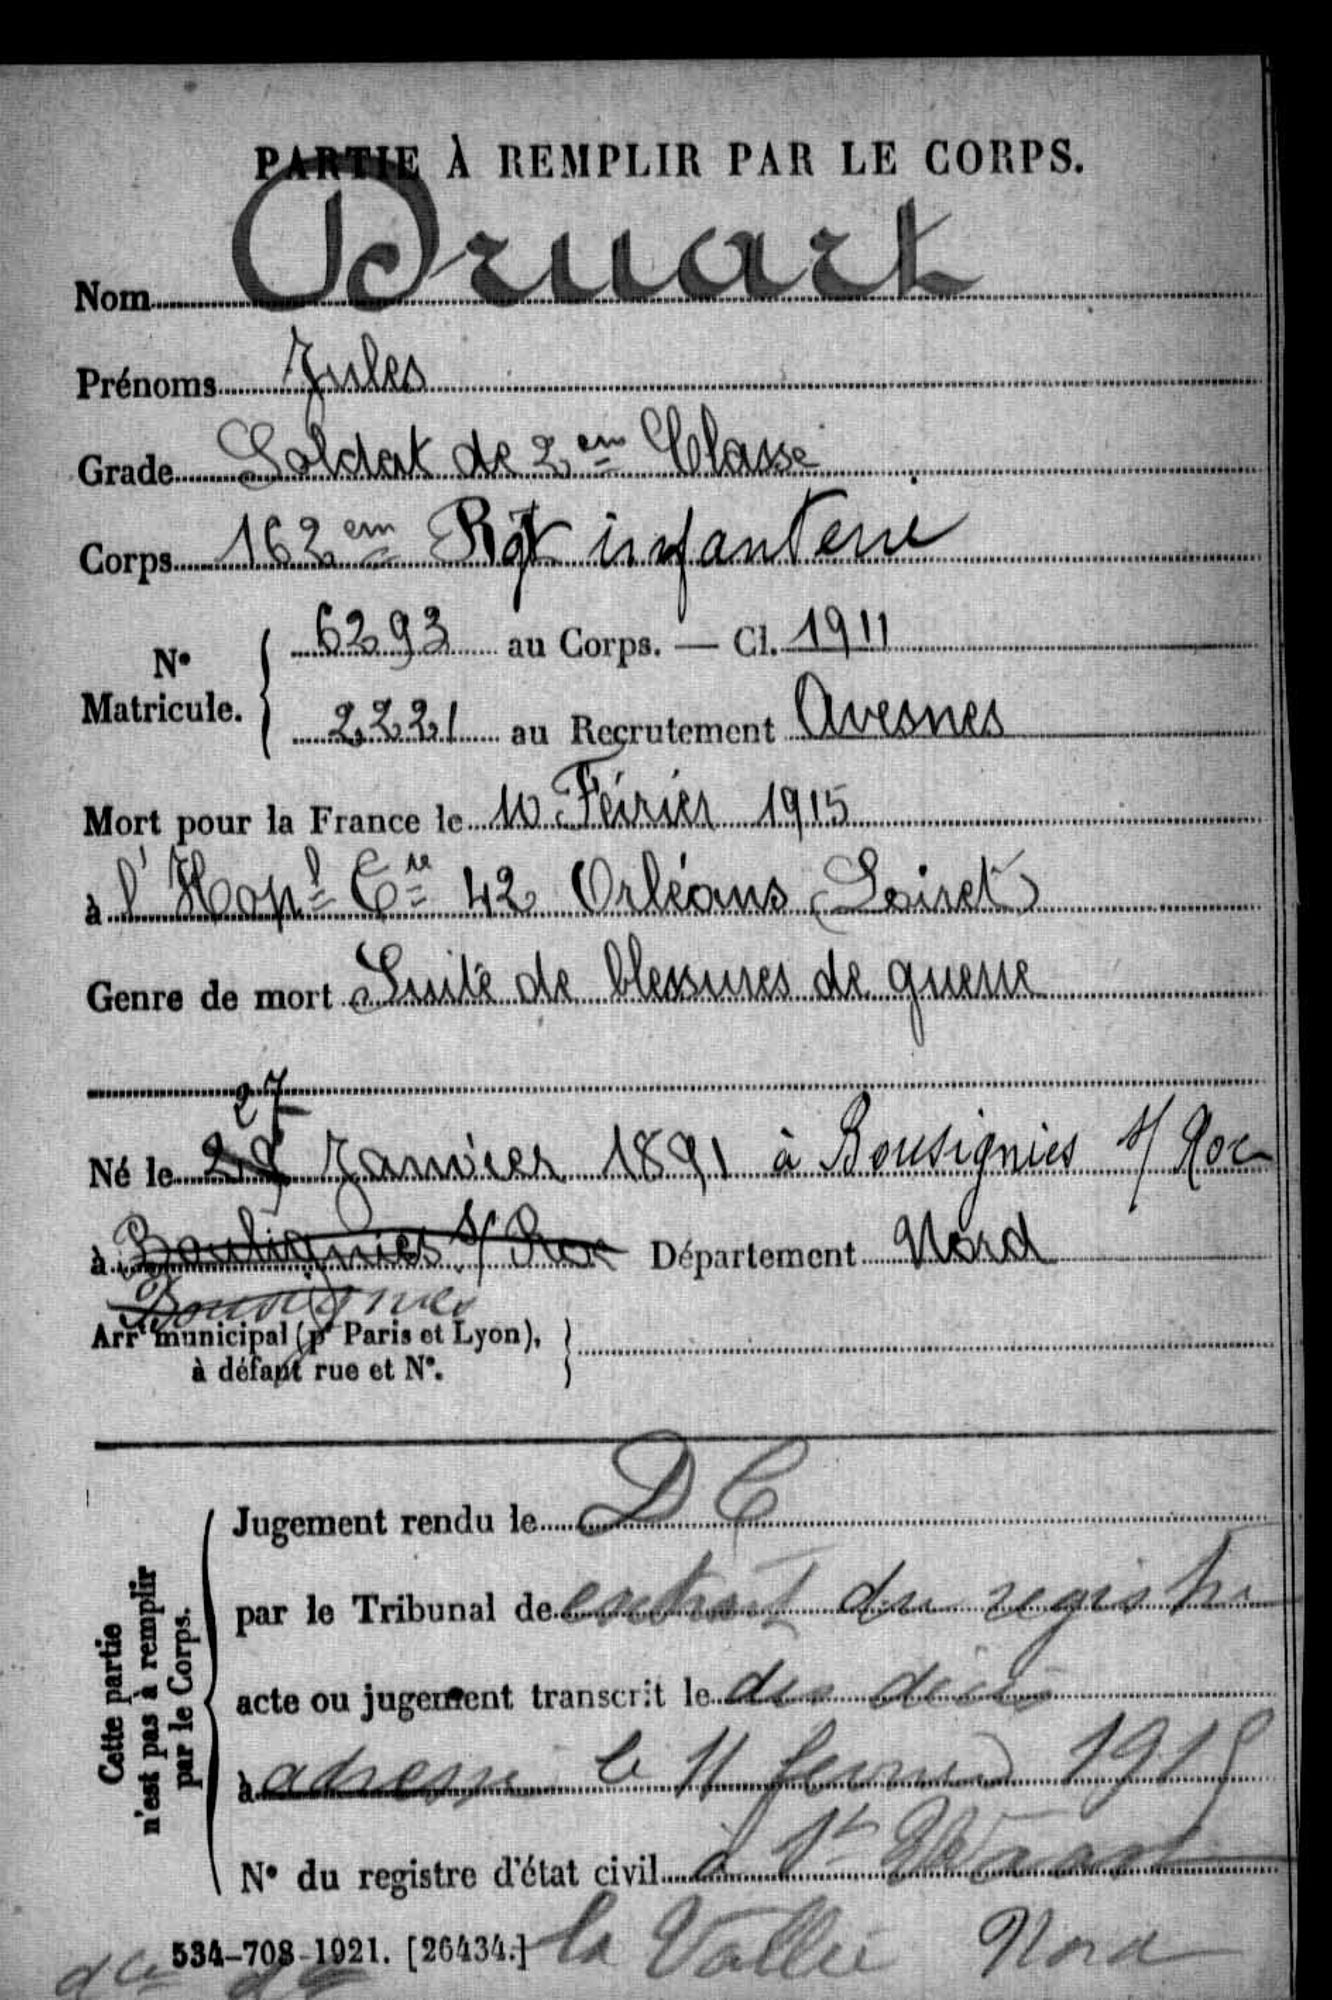 PARTIE À REMPLIR PAR LE CORPS.
Nom Druart
Prénoms Jules
Grade Soldat de 2em Classe
Corps 162em Rgt infanterie
N° Matricule. { 6293 au Corps. — Cl. 1911
2221 au Recrutement Avesnes
Mort pour la France le 10 Féirier 1915
à l'Hopl Cre 42 Orléans (Loiret)
Genre de mort Suite de blessures de guerre
27
Né le 29 Janvier 1891 à Bousignies s/ Roc
à Bousignies s/ Roc Département Nord
Bousignies
Arrt municipal (pr Paris et Lyon),
à défaut rue et N°.
Cette partie n'est pas à remplir par le Corps.
Jugement rendu le DC
par le Tribunal de extrait du registre
acte ou jugement transcrit le des décès
à adressé le 11 février 1915
N° du registre d'état civil à St Waast
534-708-1921. [26434.] la Vallée Nord